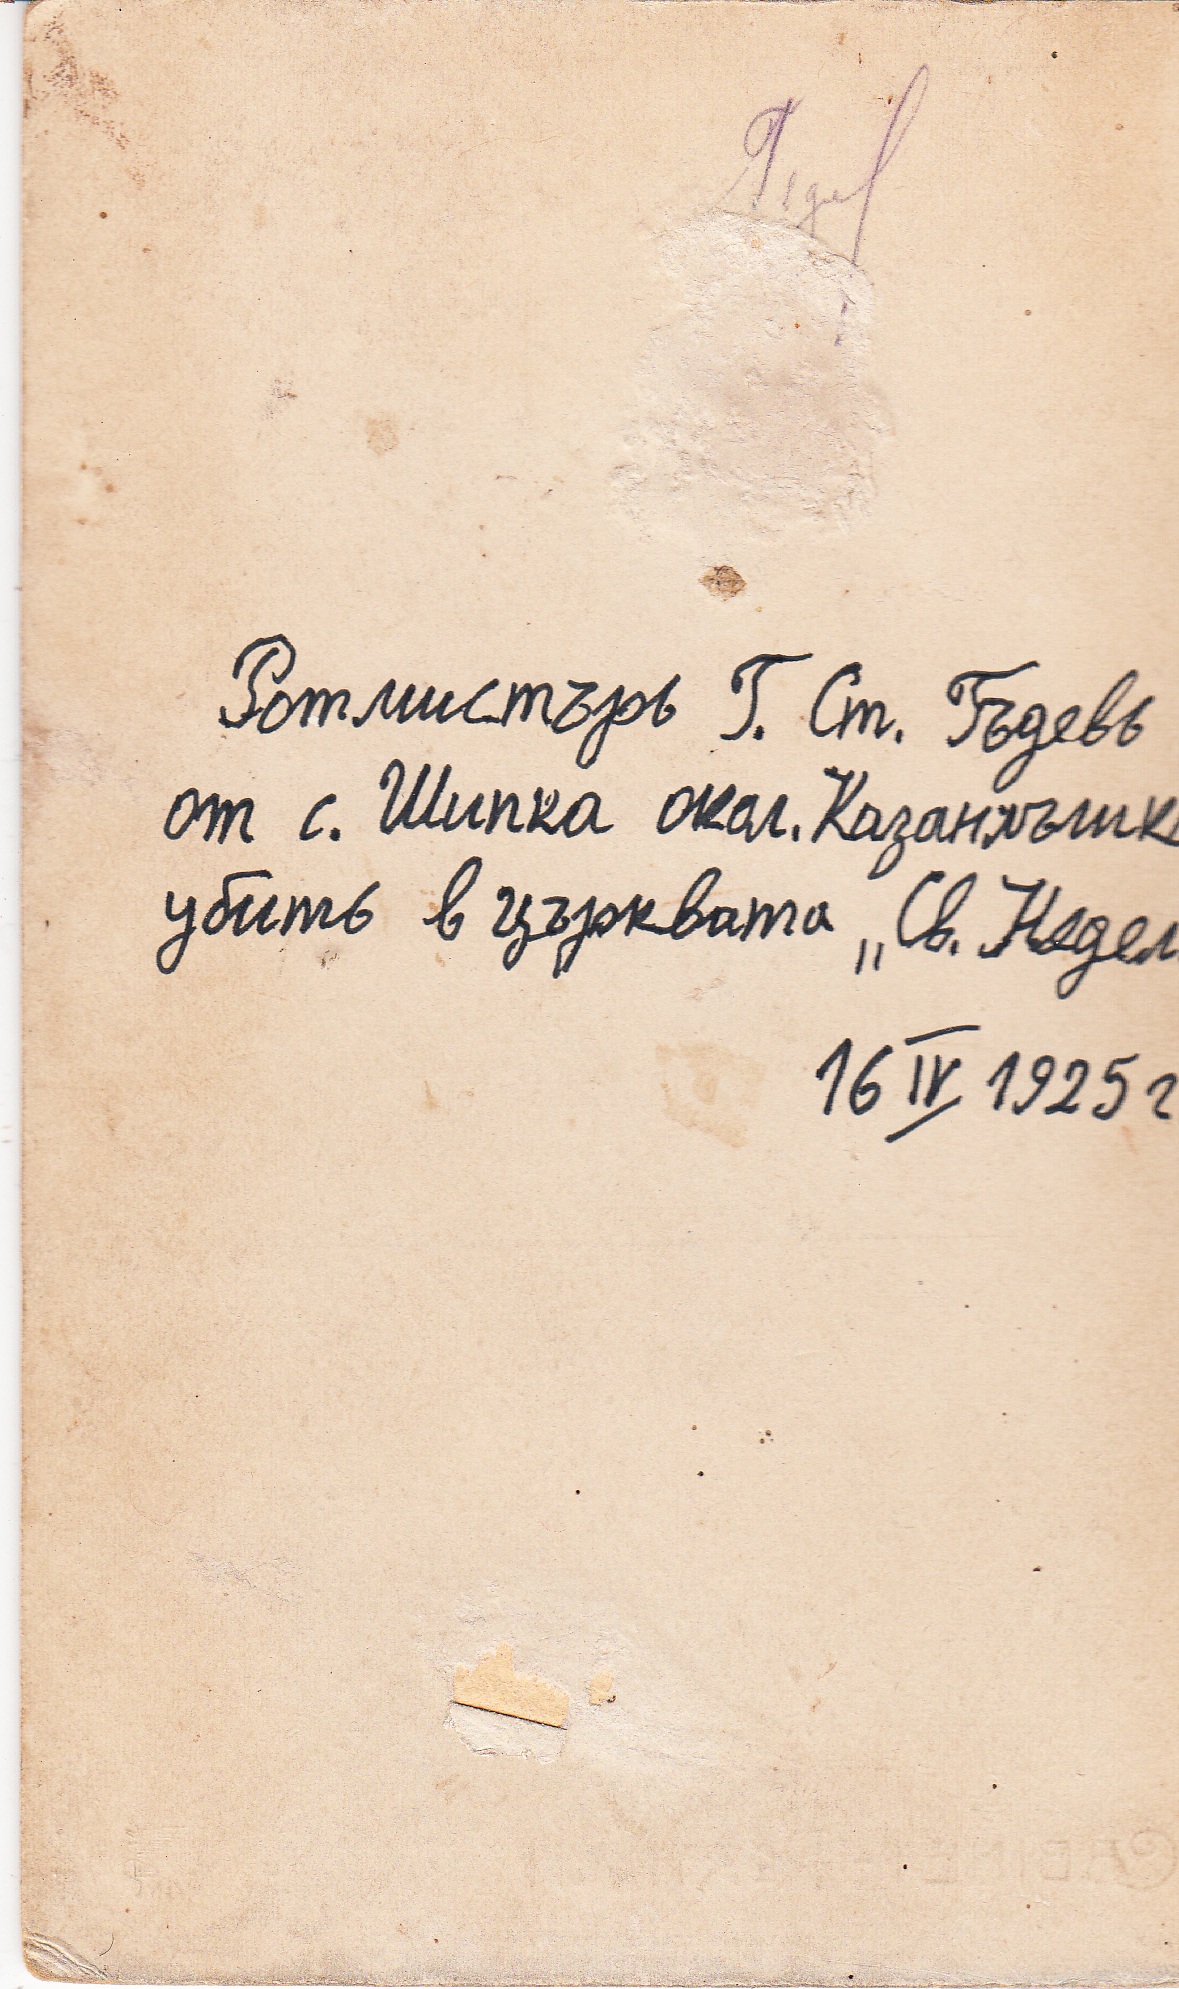 Ротмистъръ Г. Ст. Гъдевъ
от с. Шипка окол. Казанлъшк
убитъ в църквата „Св. Недел
16 IV 1925 г